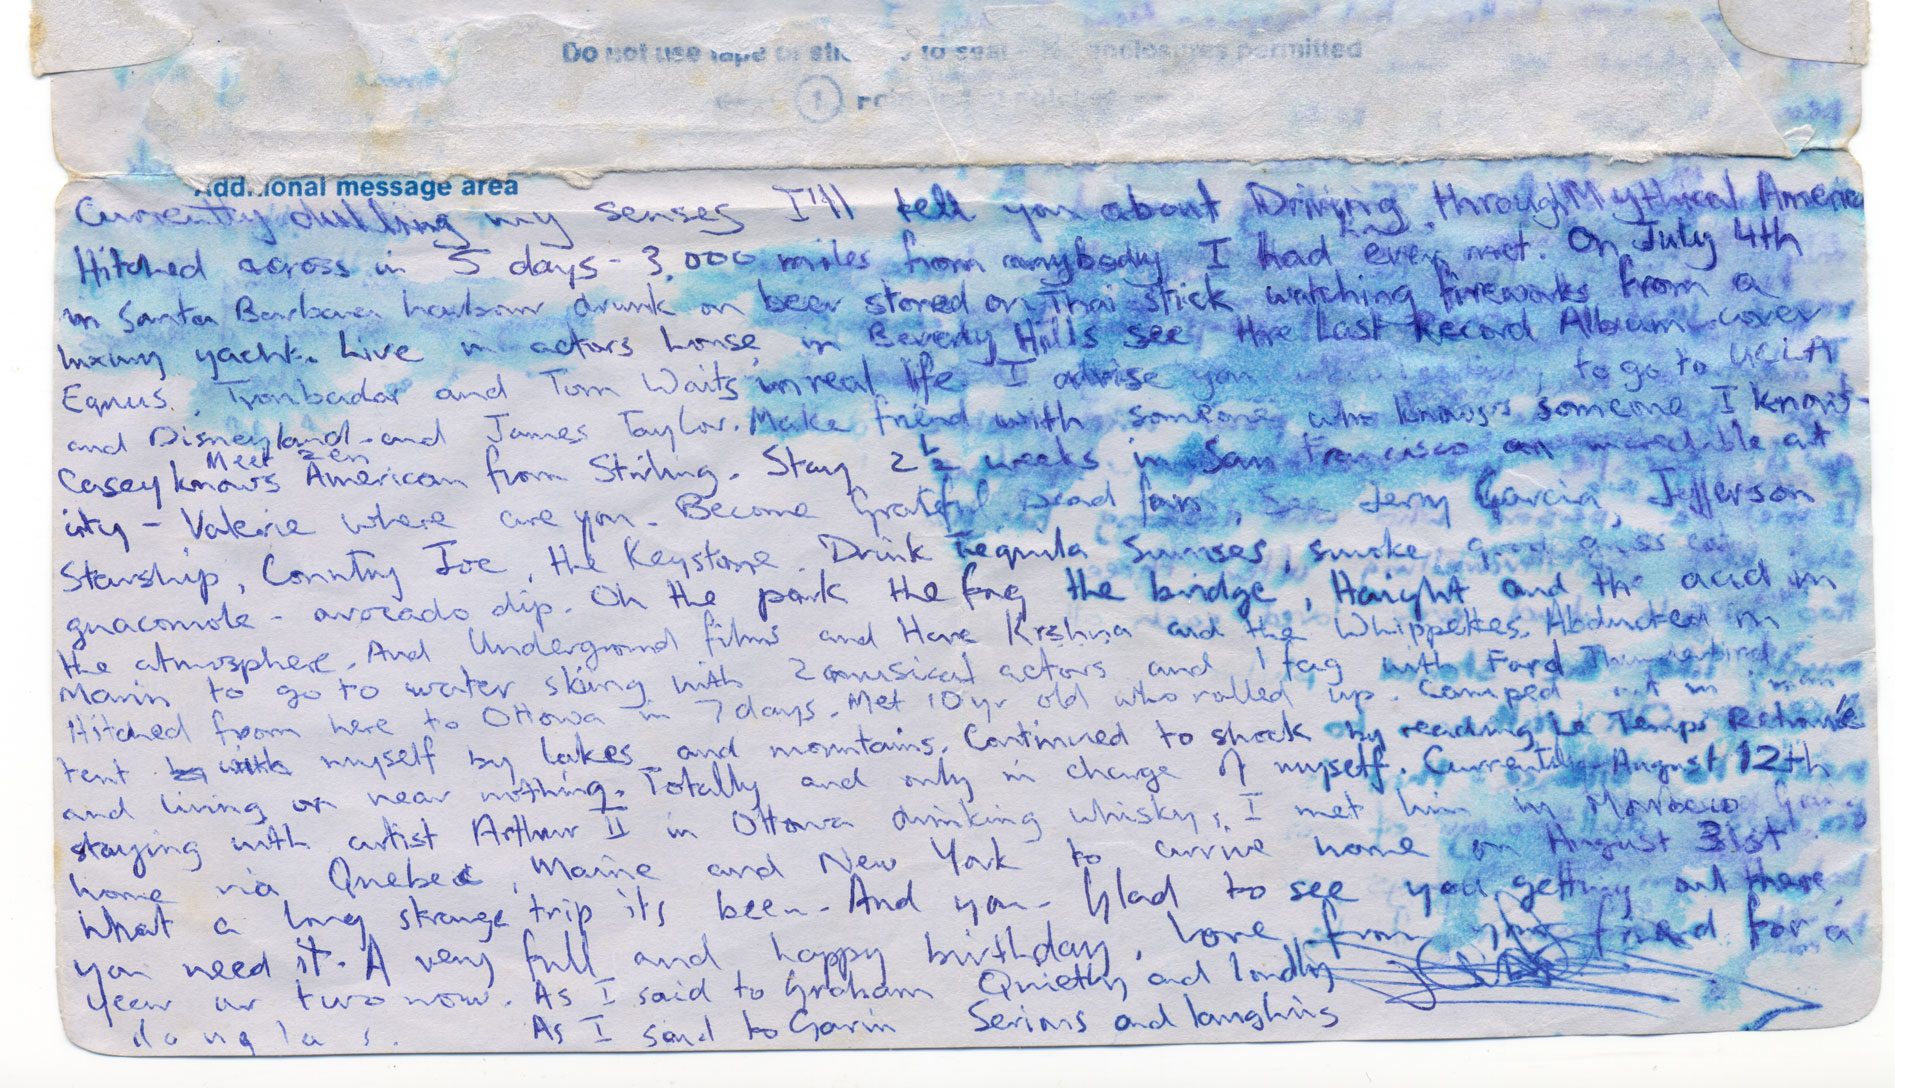 Do not use tape or to seal enclosures permitted
1
Additional message area
Currently dulling my senses I'll tell you about Driving through Mythical America
Hitched across in 5 days - 3,000 miles from anybody I had ever met. On July 4th
in Santa Barbara harbour drunk on beer stoned on Thai stick watching fireworks from a
luxury yacht. Live in actors house in Beverly Hills see the Last Record Album cover
Equus, Troubador and Tom Waits in real life I advise you to go to UCLA
and Disneyland - and James Taylor. Make friend with someone who knows someone I know -
Casey knows Meet zen American from Stirling. Stay 2 1/2 weeks in San Francisco an incredible
city - Valerie where are you. Become Grateful Dead fan, See Jerry Garcia, Jefferson
Starship, Country Joe, the Keystone. Drink Tequila Sunrises, smoke good grass
guacomole - avocado dip. Oh the park the fog the bridge, Haight and the acid in
the atmosphere. And Underground films and Hare Krshna and the Whippettes. Abducted in
Marin to go to water skiing with 2 musical actors and 1 fag with Ford Thunderbird
Hitched from here to Ottowa in 7 days. Met 10 yr old who rolled up. Camped out in 1 man
tent myself by lakes and mountains. Continued to shock by reading Le Temps Retrouvé
and living on near nothing. Totally and only in charge of myself. Currently August 12th
staying with artist Arthur II in Ottowa drinking whisky, I met him in
home via Quebec, Maine and New York to arrive home on August 31st
What a long strange trip its been. And you. Glad to see you getting out there
you need it. A very full and happy birthday, love from your friend for a
year or two now. As I said to Graham Quietly and loudly
douglas. As I said to Gavin Serious and laughing